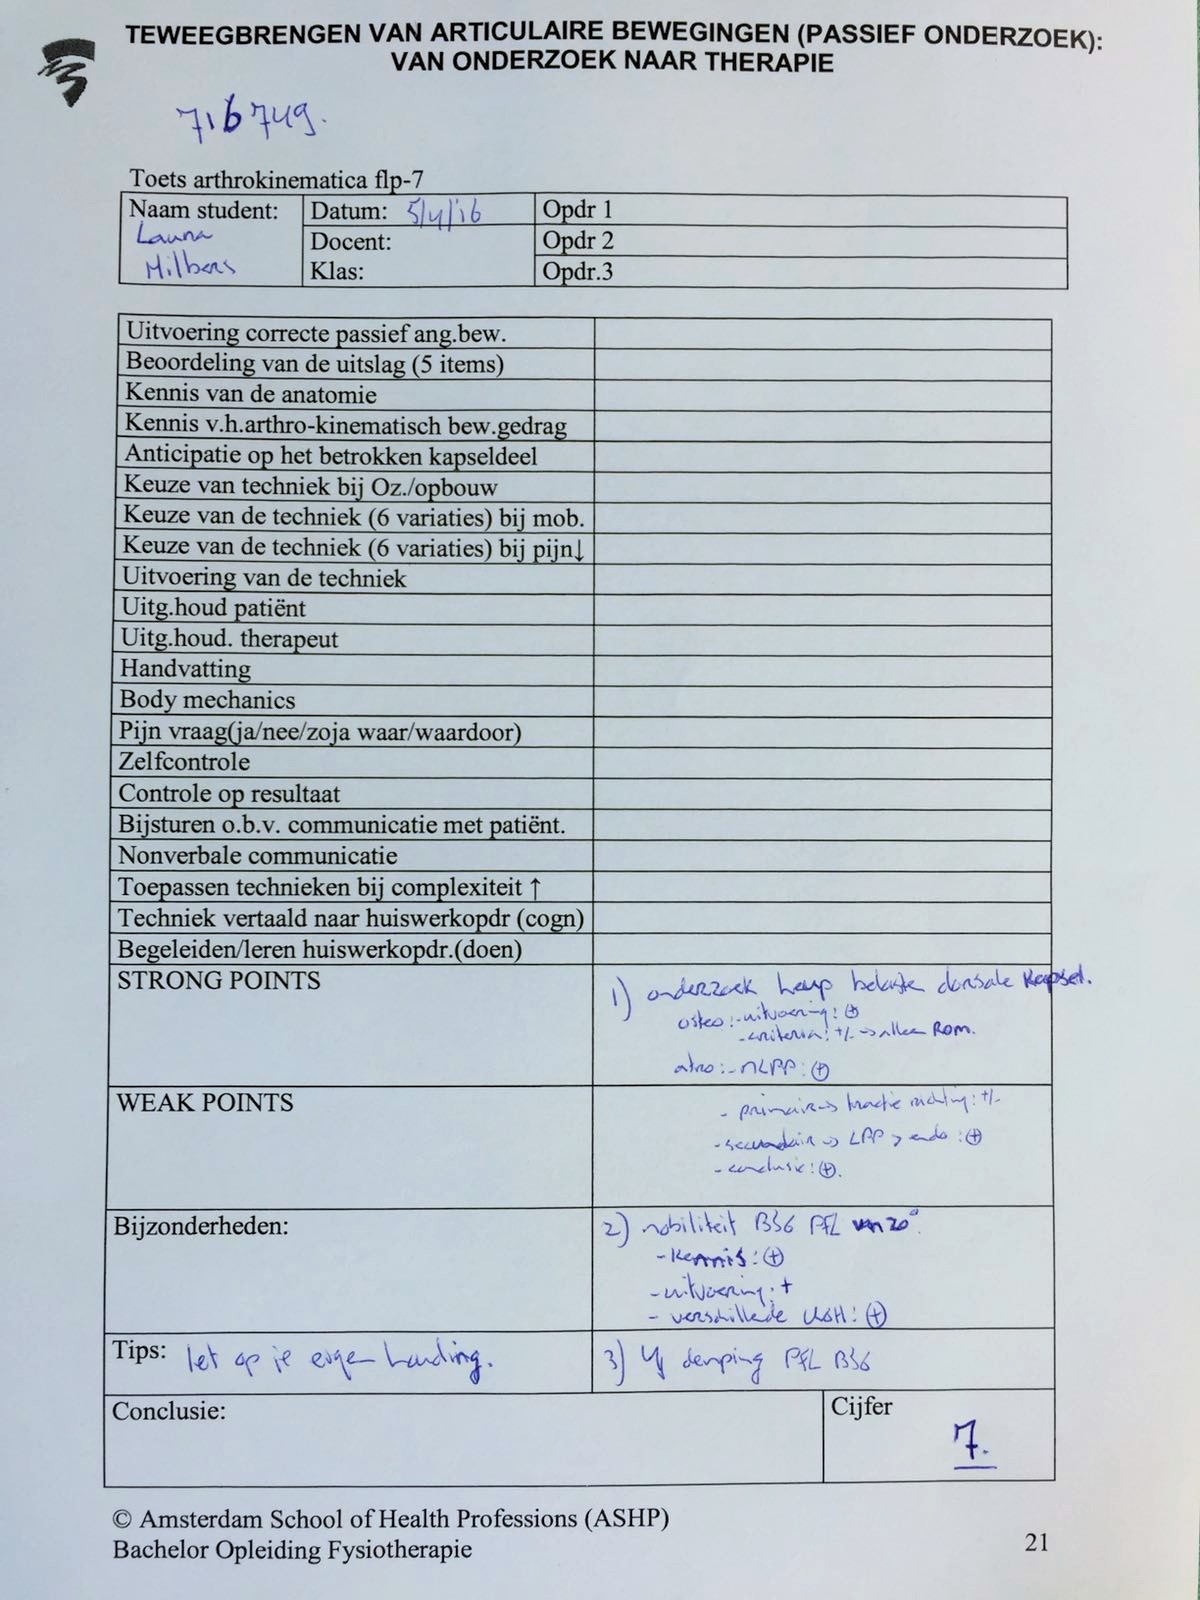 TEWEEGBRENGEN VAN ARTICULAIRE BEWEGINGEN (PASSIEF ONDERZOEK):
VAN ONDERZOEK NAAR THERAPIE
716749.
Toets arthrokinematica flp-7
Naam student: Datum: 5/4/'16 Opdr 1
Laura Docent: Opdr 2
Milbers Klas: Opdr.3
Uitvoering correcte passief ang.bew.
Beoordeling van de uitslag (5 items)
Kennis van de anatomie
Kennis v.h.arthro-kinematisch bew.gedrag
Anticipatie op het betrokken kapseldeel
Keuze van techniek bij Oz./opbouw
Keuze van de techniek (6 variaties) bij mob.
Keuze van de techniek (6 variaties) bij pijn↓
Uitvoering van de techniek
Uitg.houd patiënt
Uitg.houd. therapeut
Handvatting
Body mechanics
Pijn vraag(ja/nee/zoja waar/waardoor)
Zelfcontrole
Controle op resultaat
Bijsturen o.b.v. communicatie met patiënt.
Nonverbale communicatie
Toepassen technieken bij complexiteit ↑
Techniek vertaald naar huiswerkopdr (cogn)
Begeleiden/leren huiswerkopdr.(doen)
STRONG POINTS
1) onderzoek heup dorsale kapsel.
osteo: - uitvoering: ⊕
- criteria: +/- → alleen ROM.
- MLPP: ⊕
WEAK POINTS
- primair → tractie richting: +/-
- secundair → LPP > endo: ⊕
- conclusie: ⊕.
Bijzonderheden:
2) mobiliteit PFL van 20°.
- Kennis: ⊕
- uitvoering: +
- verschillende UGH: ⊕
Tips: let op je eigen houding.
3) demping PFL
Conclusie:
Cijfer
7.
© Amsterdam School of Health Professions (ASHP)
Bachelor Opleiding Fysiotherapie
21